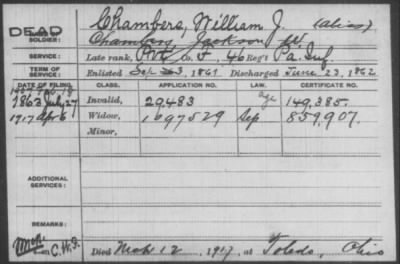 Chambers, William J. (alias)
DEAD
SOLDIER:
Chambers, Jackson W.
SERVICE:
Late rank, Pvt. Co. F, 46 Reg't Pa. Inf.
TERM OF SERVICE:
Enlisted Sep 3, 1861 Discharged June 23, 1862
DATE OF FILING.
CLASS.
APPLICATION NO.
LAW.
CERTIFICATE NO.
1863 July 27
Invalid,
29,483
age
149,385.
1917 Apr 6
Widow,
1097529
Sep
859,907.
Minor,
ADDITIONAL SERVICES:
REMARKS:
C.W.F.
Died Mch 12, 1917, at Toledo, Ohio